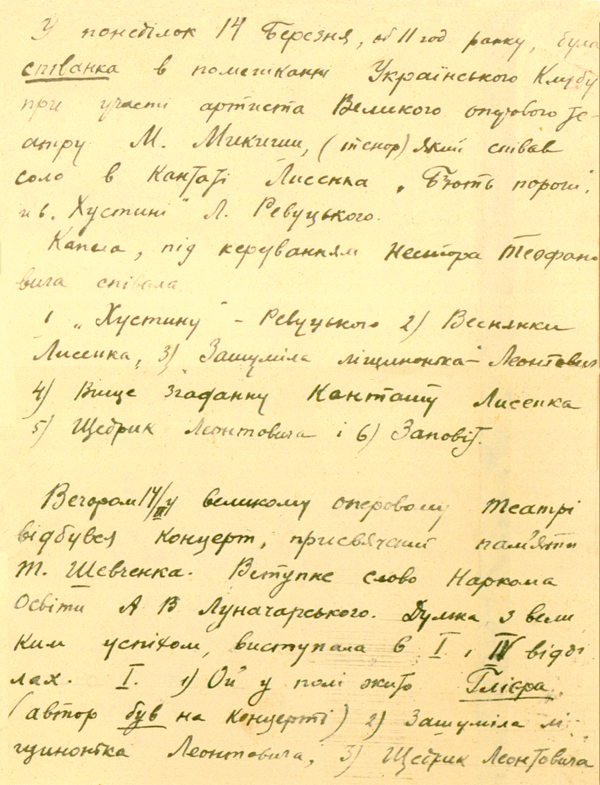 У понеділок 14 Березня, об 11 год. ранку, була
співанка в помешканні Українського Клубу
при участі артиста Великого оперового Те-
атру М. Микиши, (тенор) Який співав
соло в Кантаті Лисенка „Бʼють пороги",
и в „Хустині" Л. Ревуцького.
Капела, під керуванням Нестора Теофано-
вича співала
1 „Хустину" – Ревуцького 2) Веснянки
Лисенка, 3) Зашуміла ліщинонька – Леонтович
4) Вище згаданну Кантату Лисенка
5) Щедрик Леонтовича і 6) Заповіт.
Вечором 14/III у великому оперовому театрі
відбувся концерт, присвячений памʼяти
Т. Шевченка. Вступне слово Наркома
Освіти А В Луначарського. Думка з вели
ким успіхом, виступала в I і IV відді
лах. I. 1) Ой у полі жито Глієра
(автор був на концерті) 2) Зашуміла лі-
щинонька Леонтовича, 3) Щедрик Леонтовича